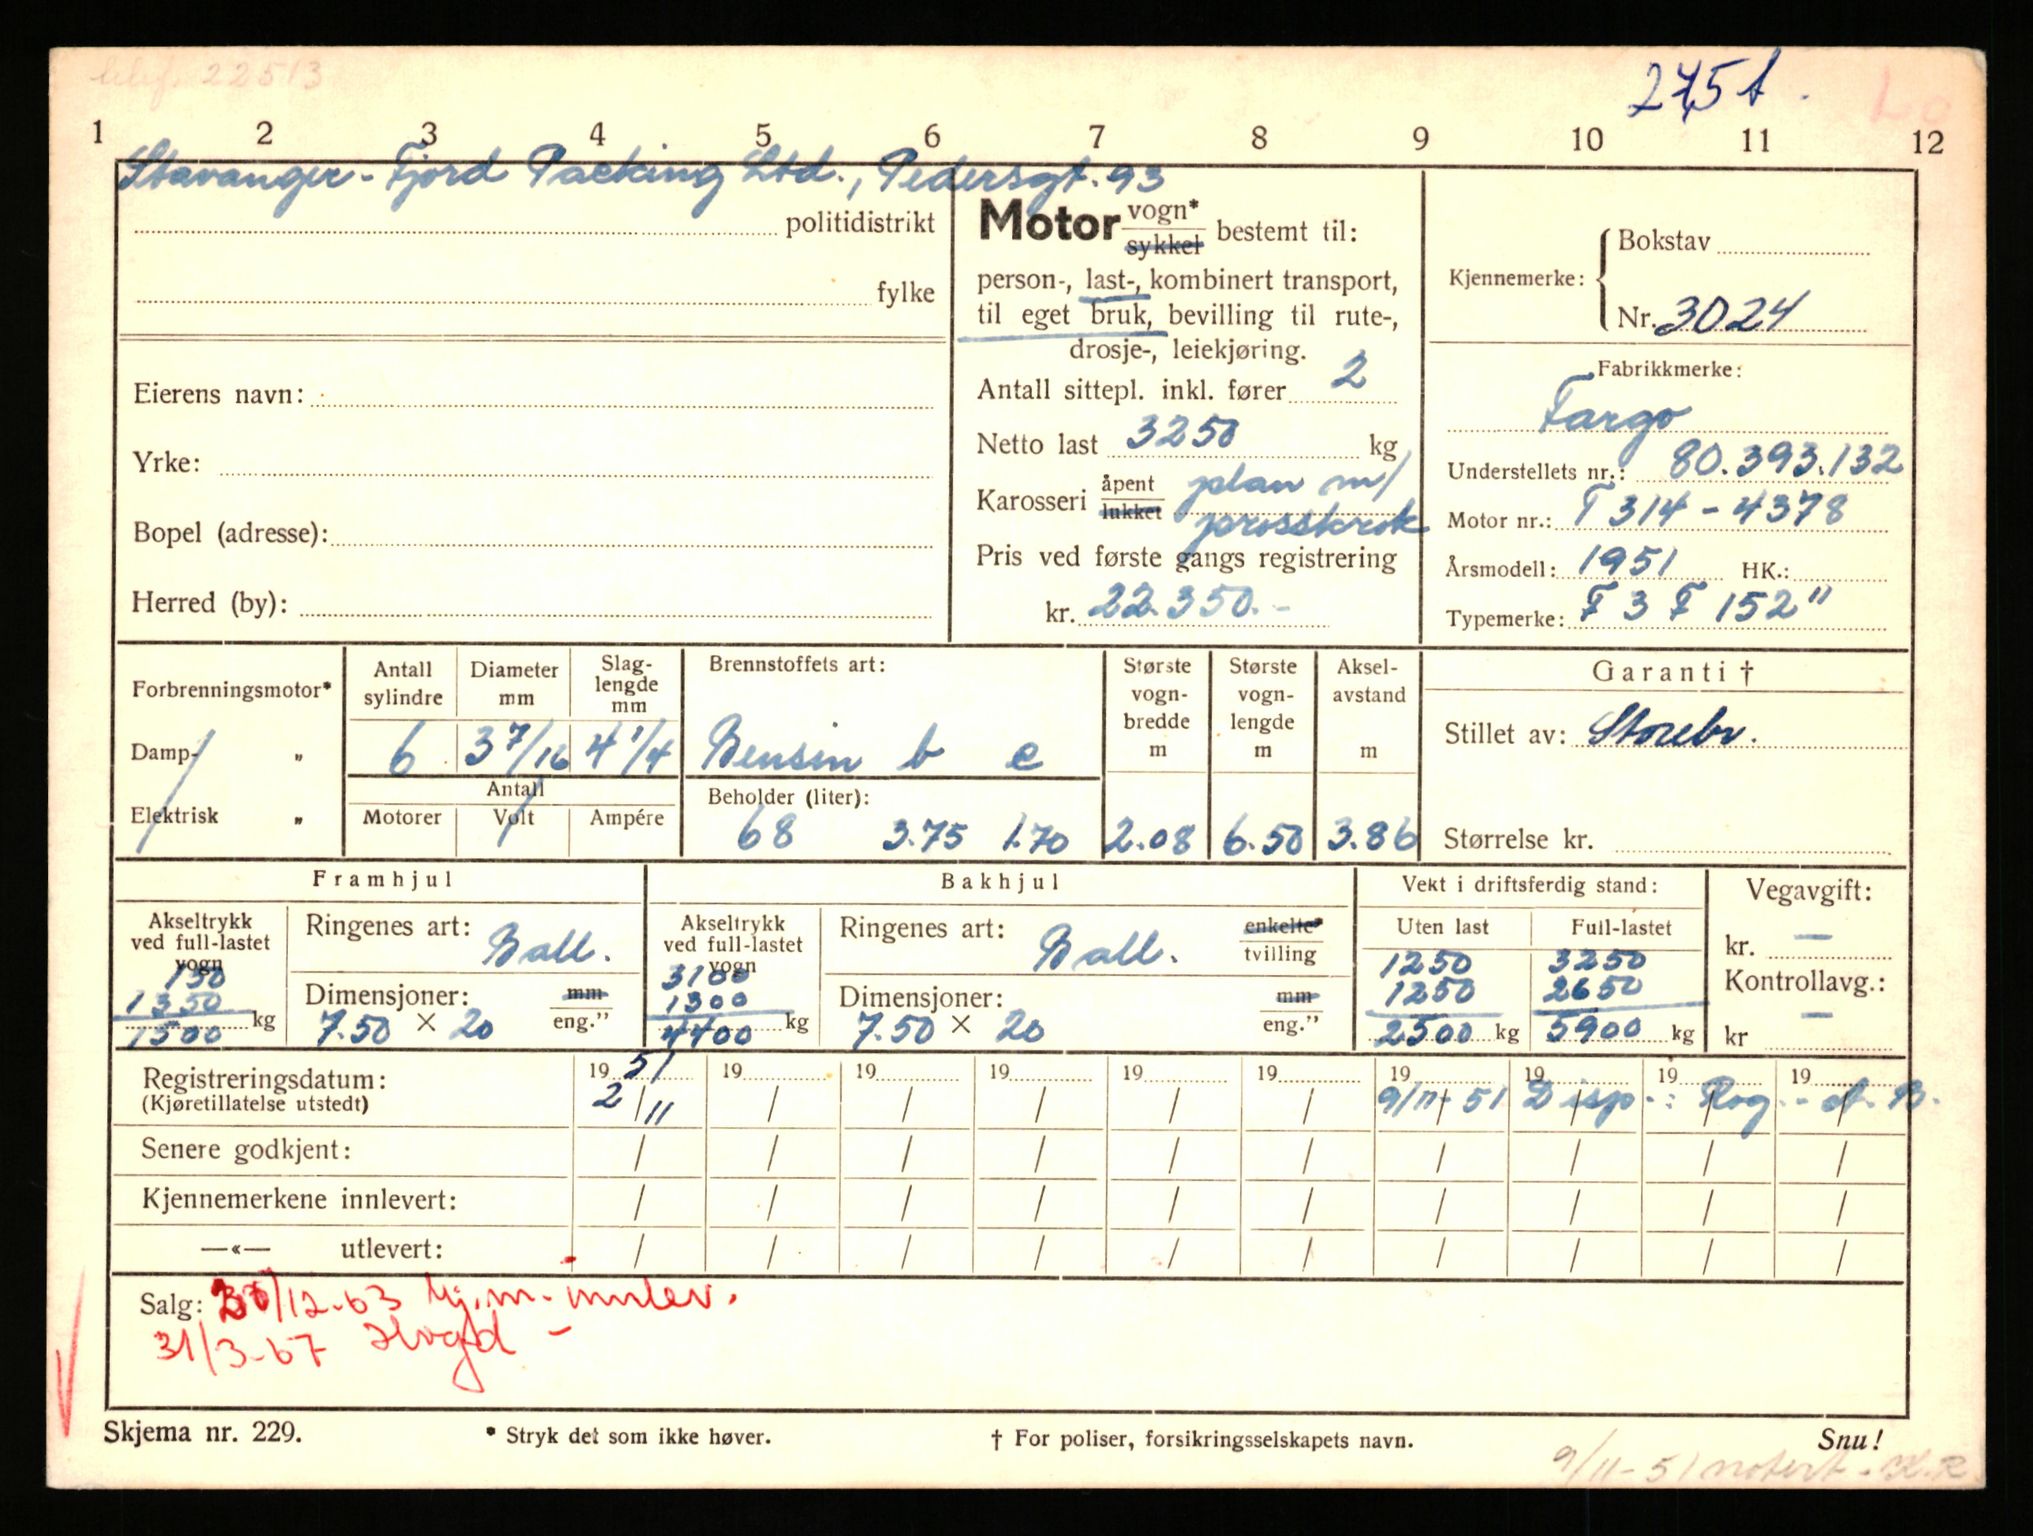 22513
275 t.
1 2 3 4 5 6 7 8 9 10 11 12
Stavanger-Fjord Packing Ltd., Pedersgt. 93
politidistrikt
fylke
Eierens navn:
Yrke:
Bopel (adresse):
Herred (by):
Motor vogn*
sykkel bestemt til:
person-, last-, kombinert transport,
til eget bruk, bevilling til rute-,
drosje-, leiekjøring.
Antall sittepl. inkl. fører 2
Netto last 3250 kg
Karosseri åpent lukket plan m/
prosskrok
Pris ved første gangs registrering
kr. 22.350.-
Kjennemerke: Bokstav
Nr. 3024
Fabrikkmerke:
Fargo
Understellets nr.: 80.393.132
Motor nr.: T 314 - 4378
Årsmodell: 1951 HK.:
Typemerke: F 3 F 152"
Forbrenningsmotor*
Damp- „
Elektrisk „
Antall sylindre Diameter mm Slaglengde mm
6 3 7/16 4 1/4
Antall
Motorer Volt Ampére
Brennstoffets art:
Bensin b e
Beholder (liter):
68 3.75 1.70
Største vognbredde m 2.08
Største vognlengde m 6.50
Akselavstand m 3.86
Garanti †
Stillet av: Storebr.
Størrelse kr.
Framhjul
Akseltrykk ved full-lastet vogn
150
1350
1500 kg
Ringenes art: Ball.
Dimensjoner: mm eng."
7.50 × 20
Bakhjul
Akseltrykk ved full-lastet vogn
3100
1300
4400 kg
Ringenes art: Ball. enkelte* tvilling
Dimensjoner: mm eng."
7.50 × 20
Vekt i driftsferdig stand:
Uten last Full-lastet
1250 3250
1250 2650
2500 kg 5900 kg
Vegavgift:
kr. —
Kontrollavg.:
kr —
Registreringsdatum: 19 51 19 19 19 19 19 19 19 19 19
(Kjøretillatelse utstedt) 2/11 / / / / / 9/11-51 Disp.: Rog. - A.B.
Senere godkjent: / / / / / / / / / /
Kjennemerkene innlevert: / / / / / / / / / /
—«— utlevert: / / / / / / / / / /
Salg: 30/12-63 kj.m. innlev.
31/3-67 Hvgd -
Skjema nr. 229.
* Stryk det som ikke høver.
† For poliser, forsikringsselskapets navn.
Snu!
9/11-51 notert - K.R.